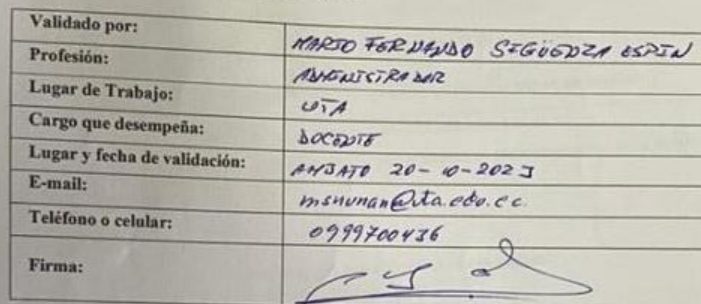 Validado por: MARIO FERNANDO SIGÜENZA ESPIN
Profesión: ADMINISTRADOR
Lugar de Trabajo: UTA
Cargo que desempeña: DOCENTE
Lugar y fecha de validación: AMBATO 20-10-2023
E-mail: @uta.edu.ec
Teléfono o celular: 0999700436
Firma: